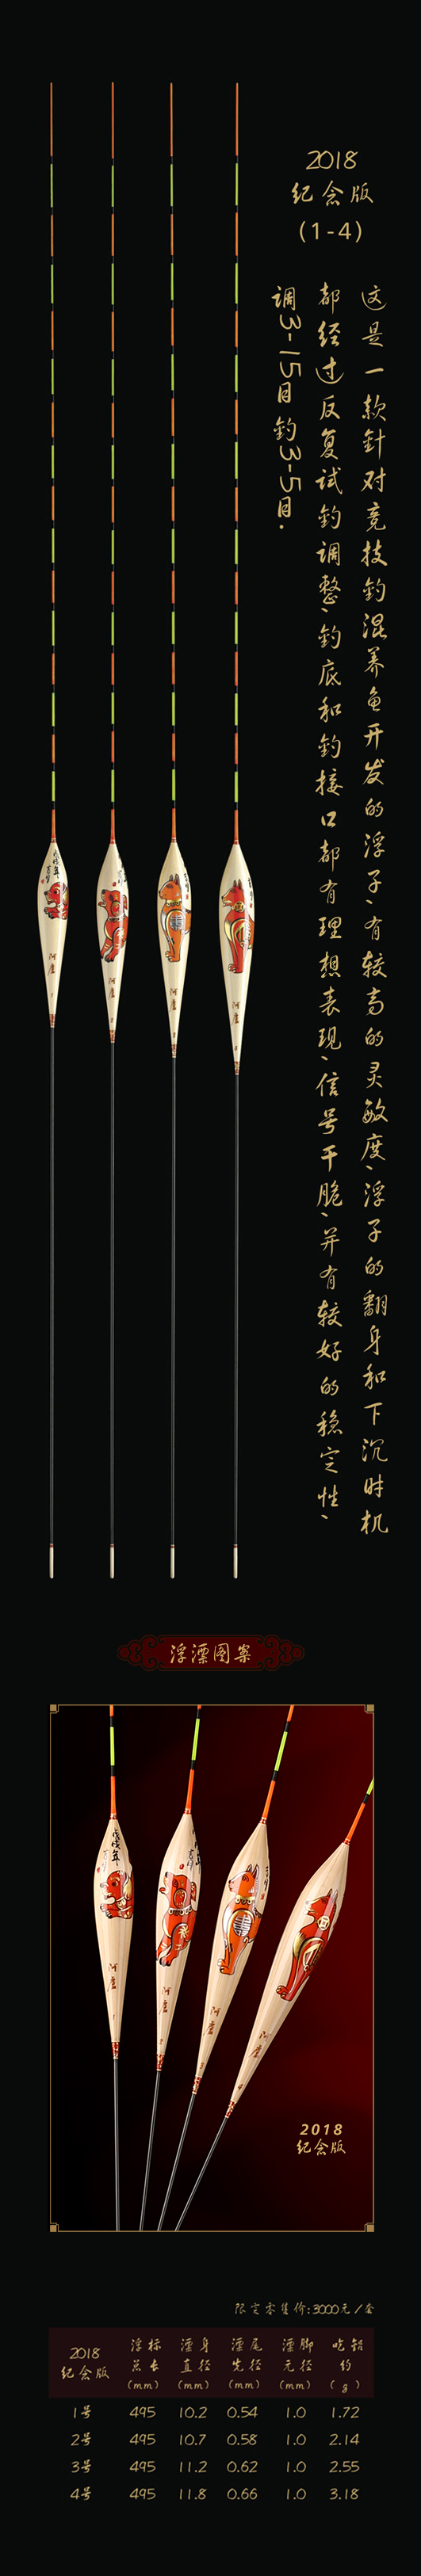 2018
纪念版
(1-4)
这是一款针对竞技钓混养鱼开发的浮子、有较高的灵敏度、浮子的翻身和下沉时机
都经过反复试钓调整、钓底和钓接口都有理想表现、信号干脆、并有较好的稳定性、
调3-15目 钓3-5目.
戊戌年
阿卢
阿卢
阿卢
阿卢
浮漂图案
戊戌年
阿卢
1
阿卢
2
阿卢
3
阿卢
4
2018
纪念版
限定零售价:3000元/套
2018 纪念版 浮标总长(mm) 漂身直径(mm) 漂尾先径(mm) 漂脚元径(mm) 吃铅约(g)
1号 495 10.2 0.54 1.0 1.72
2号 495 10.7 0.58 1.0 2.14
3号 495 11.2 0.62 1.0 2.55
4号 495 11.8 0.66 1.0 3.18